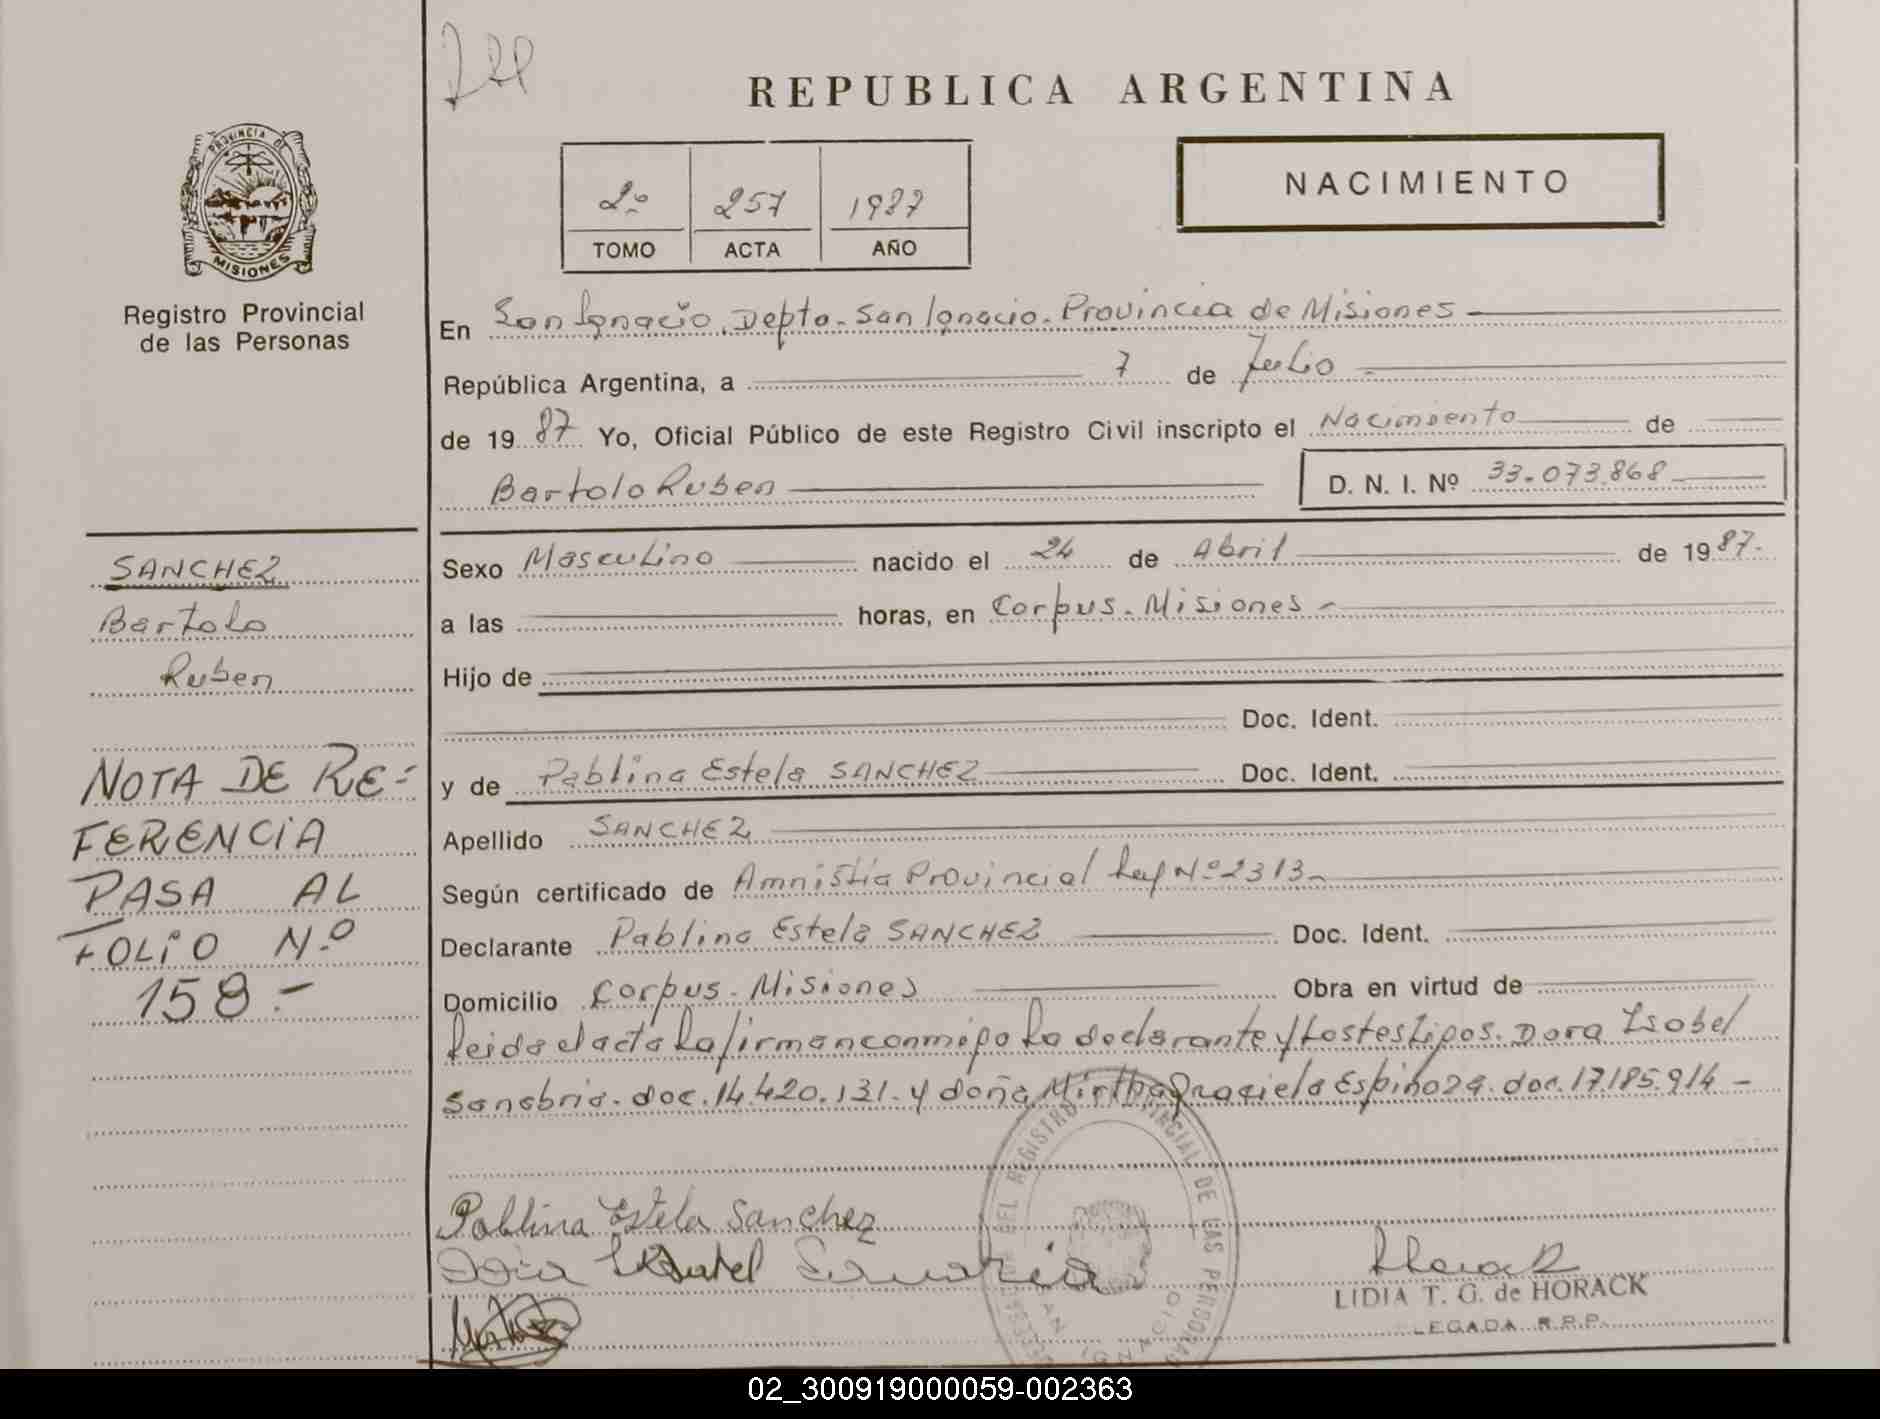 REPUBLICA ARGENTINA
PROVINCIA DE
MISIONES
Registro Provincial
de las Personas
2º 257 1987
TOMO ACTA AÑO
NACIMIENTO
En San Ignacio. Depto. San Ignacio. Provincia de Misiones
República Argentina, a 7 de Julio
de 1987 Yo, Oficial Público de este Registro Civil inscripto el Nacimiento de
Bartolo Ruben D. N. I. Nº 33.073.868
SANCHEZ
Bartolo
Ruben
NOTA DE RE-
FERENCIA
PASA AL
FOLIO Nº
158.-
Sexo Masculino nacido el 24 de Abril de 1987.
a las horas, en Corpus. Misiones -
Hijo de
Doc. Ident.
y de Pablina Estela SANCHEZ Doc. Ident.
Apellido SANCHEZ
Según certificado de Amnistia Provincial Ley Nº 2313-
Declarante Pablina Estela SANCHEZ Doc. Ident.
Domicilio Corpus. Misiones Obra en virtud de
Leida el acta la firman conmigo la declarante y los testigos. Dora Isabel
Sanabria. doc. 14.420.131. y doña Mirtha Graciela Espinoza. doc. 17.185.914 -
Pablina Estela Sanchez
Isabel Sanabria
DEL REGISTRO PROVINCIAL DE LAS PERSONAS
SAN IGNACIO
LIDIA T. G. de HORACK
LEGADA R.P.P.
02_300919000059-002363